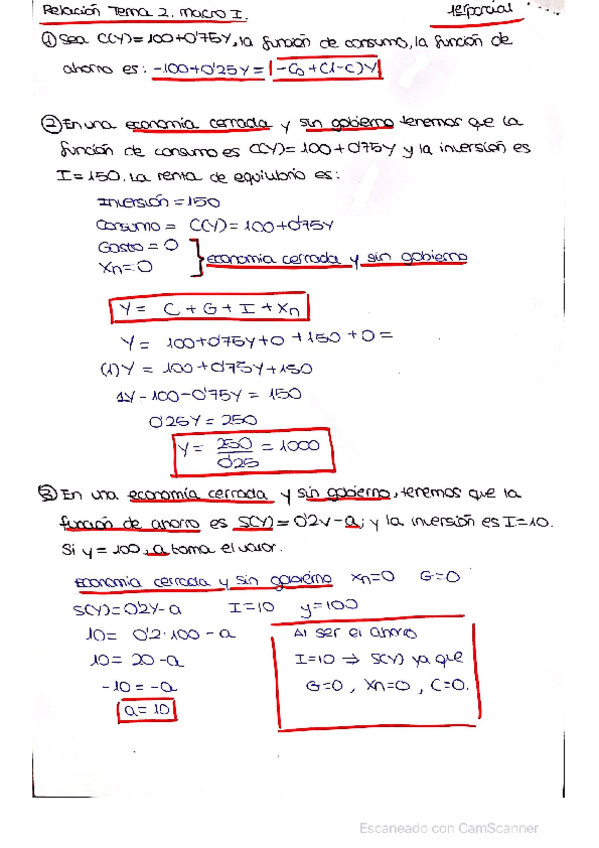 Relación Tema 2. Macro I. 1er parcial
① Sea C(Y)=100+0'75Y, la función de consumo, la función de
ahorro es: -100+0'25Y = -C₀+(1-C)Y
② En una economía cerrada y sin gobierno tenemos que la
función de consumo es C(Y)=100+0'75Y y la inversión es
I=150. La renta de equilibrio es:
Inversión=150
Consumo= C(Y)=100+0'75Y
Gasto=0
Xn=0
economía cerrada y sin gobierno
Y= C+G+I+Xn
Y= 100+0'75Y+0+150+0=
(1)Y = 100+0'75Y+150
1Y-100-0'75Y = 150
0'25Y=250
Y= 250/0'25 = 1000
③ En una economía cerrada y sin gobierno, tenemos que la
función de ahorro es S(Y)=0'2Y-a; y la inversión es I=10.
Si y=100, a toma el valor.
Economía cerrada y sin gobierno Xn=0 G=0
S(Y)=0'2Y-a I=10 y=100
10= 0'2·100-a
10= 20-a
-10=-a
a=10
Al ser el ahorro
I=10 ⇒ S(Y) ya que
G=0, Xn=0, C=0.
Escaneado con CamScanner